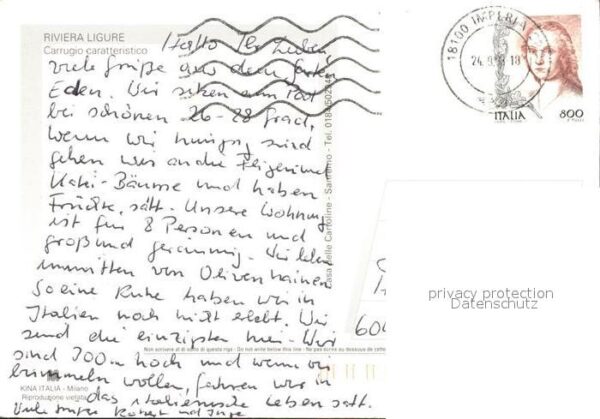 RIVIERA LIGURE
Carrugio caratteristico
Hallo Ihr Lieben
viele Grüße aus dem Garten
Eden. Wir sitzen am Pool
bei schönen 26-28 Grad,
wenn wir hungrig sind
gehen wir an die Feigen und
Kaki-Bäume und haben
Früchte satt. Unsere Wohnung
ist für 8 Personen und
groß und geräumig. Wir leben
inmitten von Olivenhainen
So eine Ruhe haben wir in
Italien noch nicht erlebt. Wir
sind die einzigsten hier. Wir
sind 300m hoch und wenn wir
bummeln wollen, fahren wir in
das italienische Leben satt.
Viele Grüße Robert und Inge
KINA ITALIA - Milano
Riproduzione vietata
Casa delle Cartoline - Sanremo - Tel. 0184
Non scrivere al di sotto di questa riga - Do not write below this line - Ne pas écrire au dessous de cette
18100 IMPERIA
24.9. 18
ITALIA
800
privacy protection
Datenschutz
600